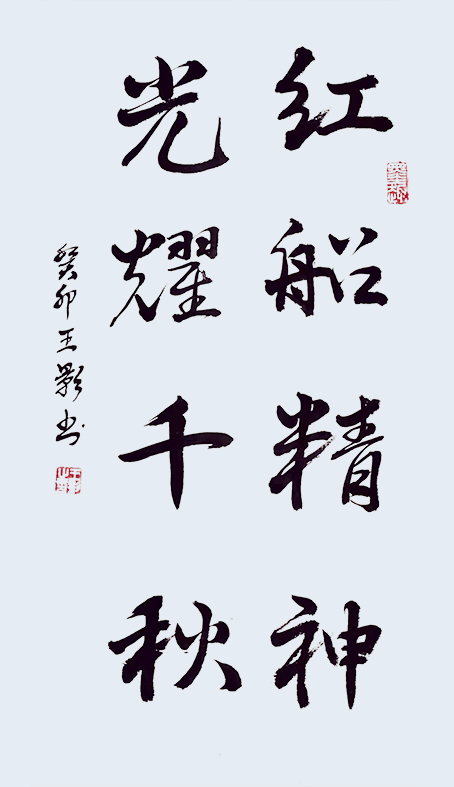 红船精神
光耀千秋
癸卯王影书